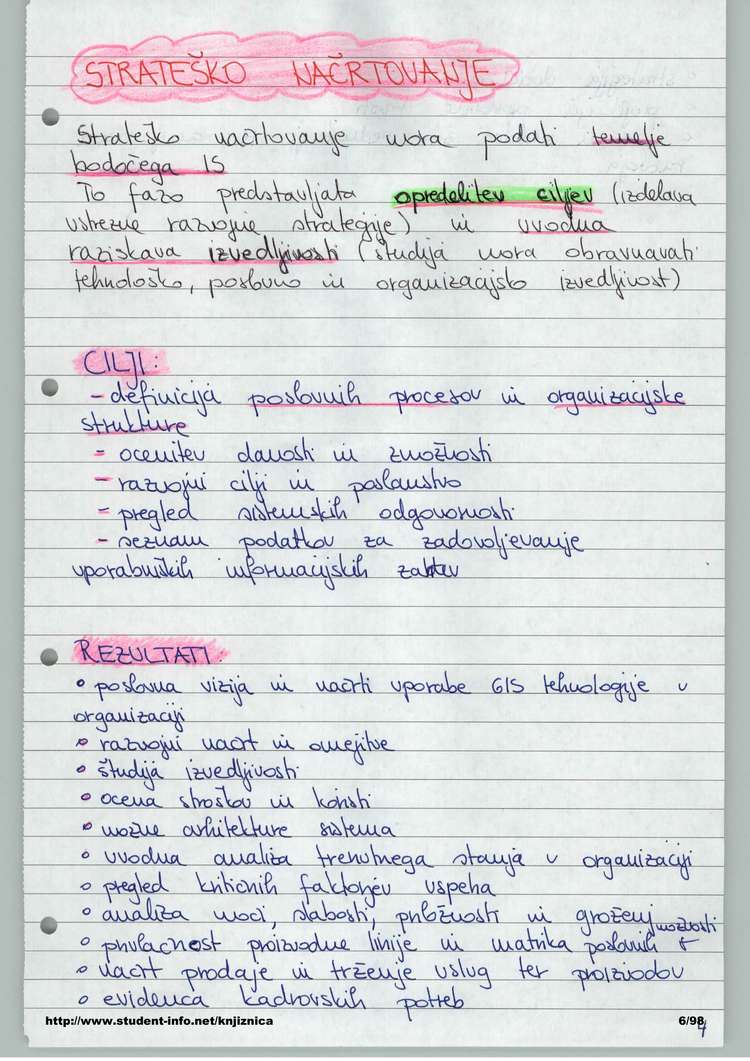 STRATEŠKO NAČRTOVANJE
Strateško načrtovanje mora podati temelje
bodočega IS
To fazo predstavljata opredelitev ciljev (izdelava
ustrezne razvojne strategije) in uvodna
raziskava izvedljivosti (študija mora obravnavati
tehnološko, poslovno in organizacijsko izvedljivost)
CILJI:
- definicija poslovnih procesov in organizacijske
strukture
- ocenitev danosti in zmožnosti
- razvojni cilji in poslanstvo
- pregled sistemskih odgovornosti
- seznam podatkov za zadovoljevanje
uporabniških informacijskih zahtev
REZULTATI:
• poslovna vizija in načrti uporabe GIS tehnologije v
organizaciji
• razvojni načrt in omejitve
• študija izvedljivosti
• ocena stroškov in koristi
• možne arhitekture sistema
• uvodna analiza trenutnega stanja v organizaciji
• pregled kritičnih faktorjev uspeha
• analiza moči, slabosti, priložnosti in groženj
• privlačnost proizvodne linije in matrika poslovnih možnosti
• načrt prodaje in trženje uslug ter proizvodov
• evidenca kadrovskih potreb
http://www.student-info.net/knjiznica 6/98
4